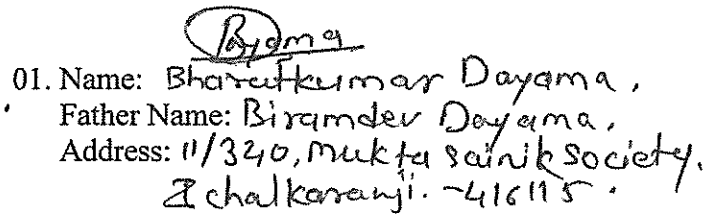 Dayama
01. Name: Bharatkumar Dayama,
Father Name: Biramdev Dayama,
Address: 11/340, mukta sainik society,
Ichalkaranji. -416115.